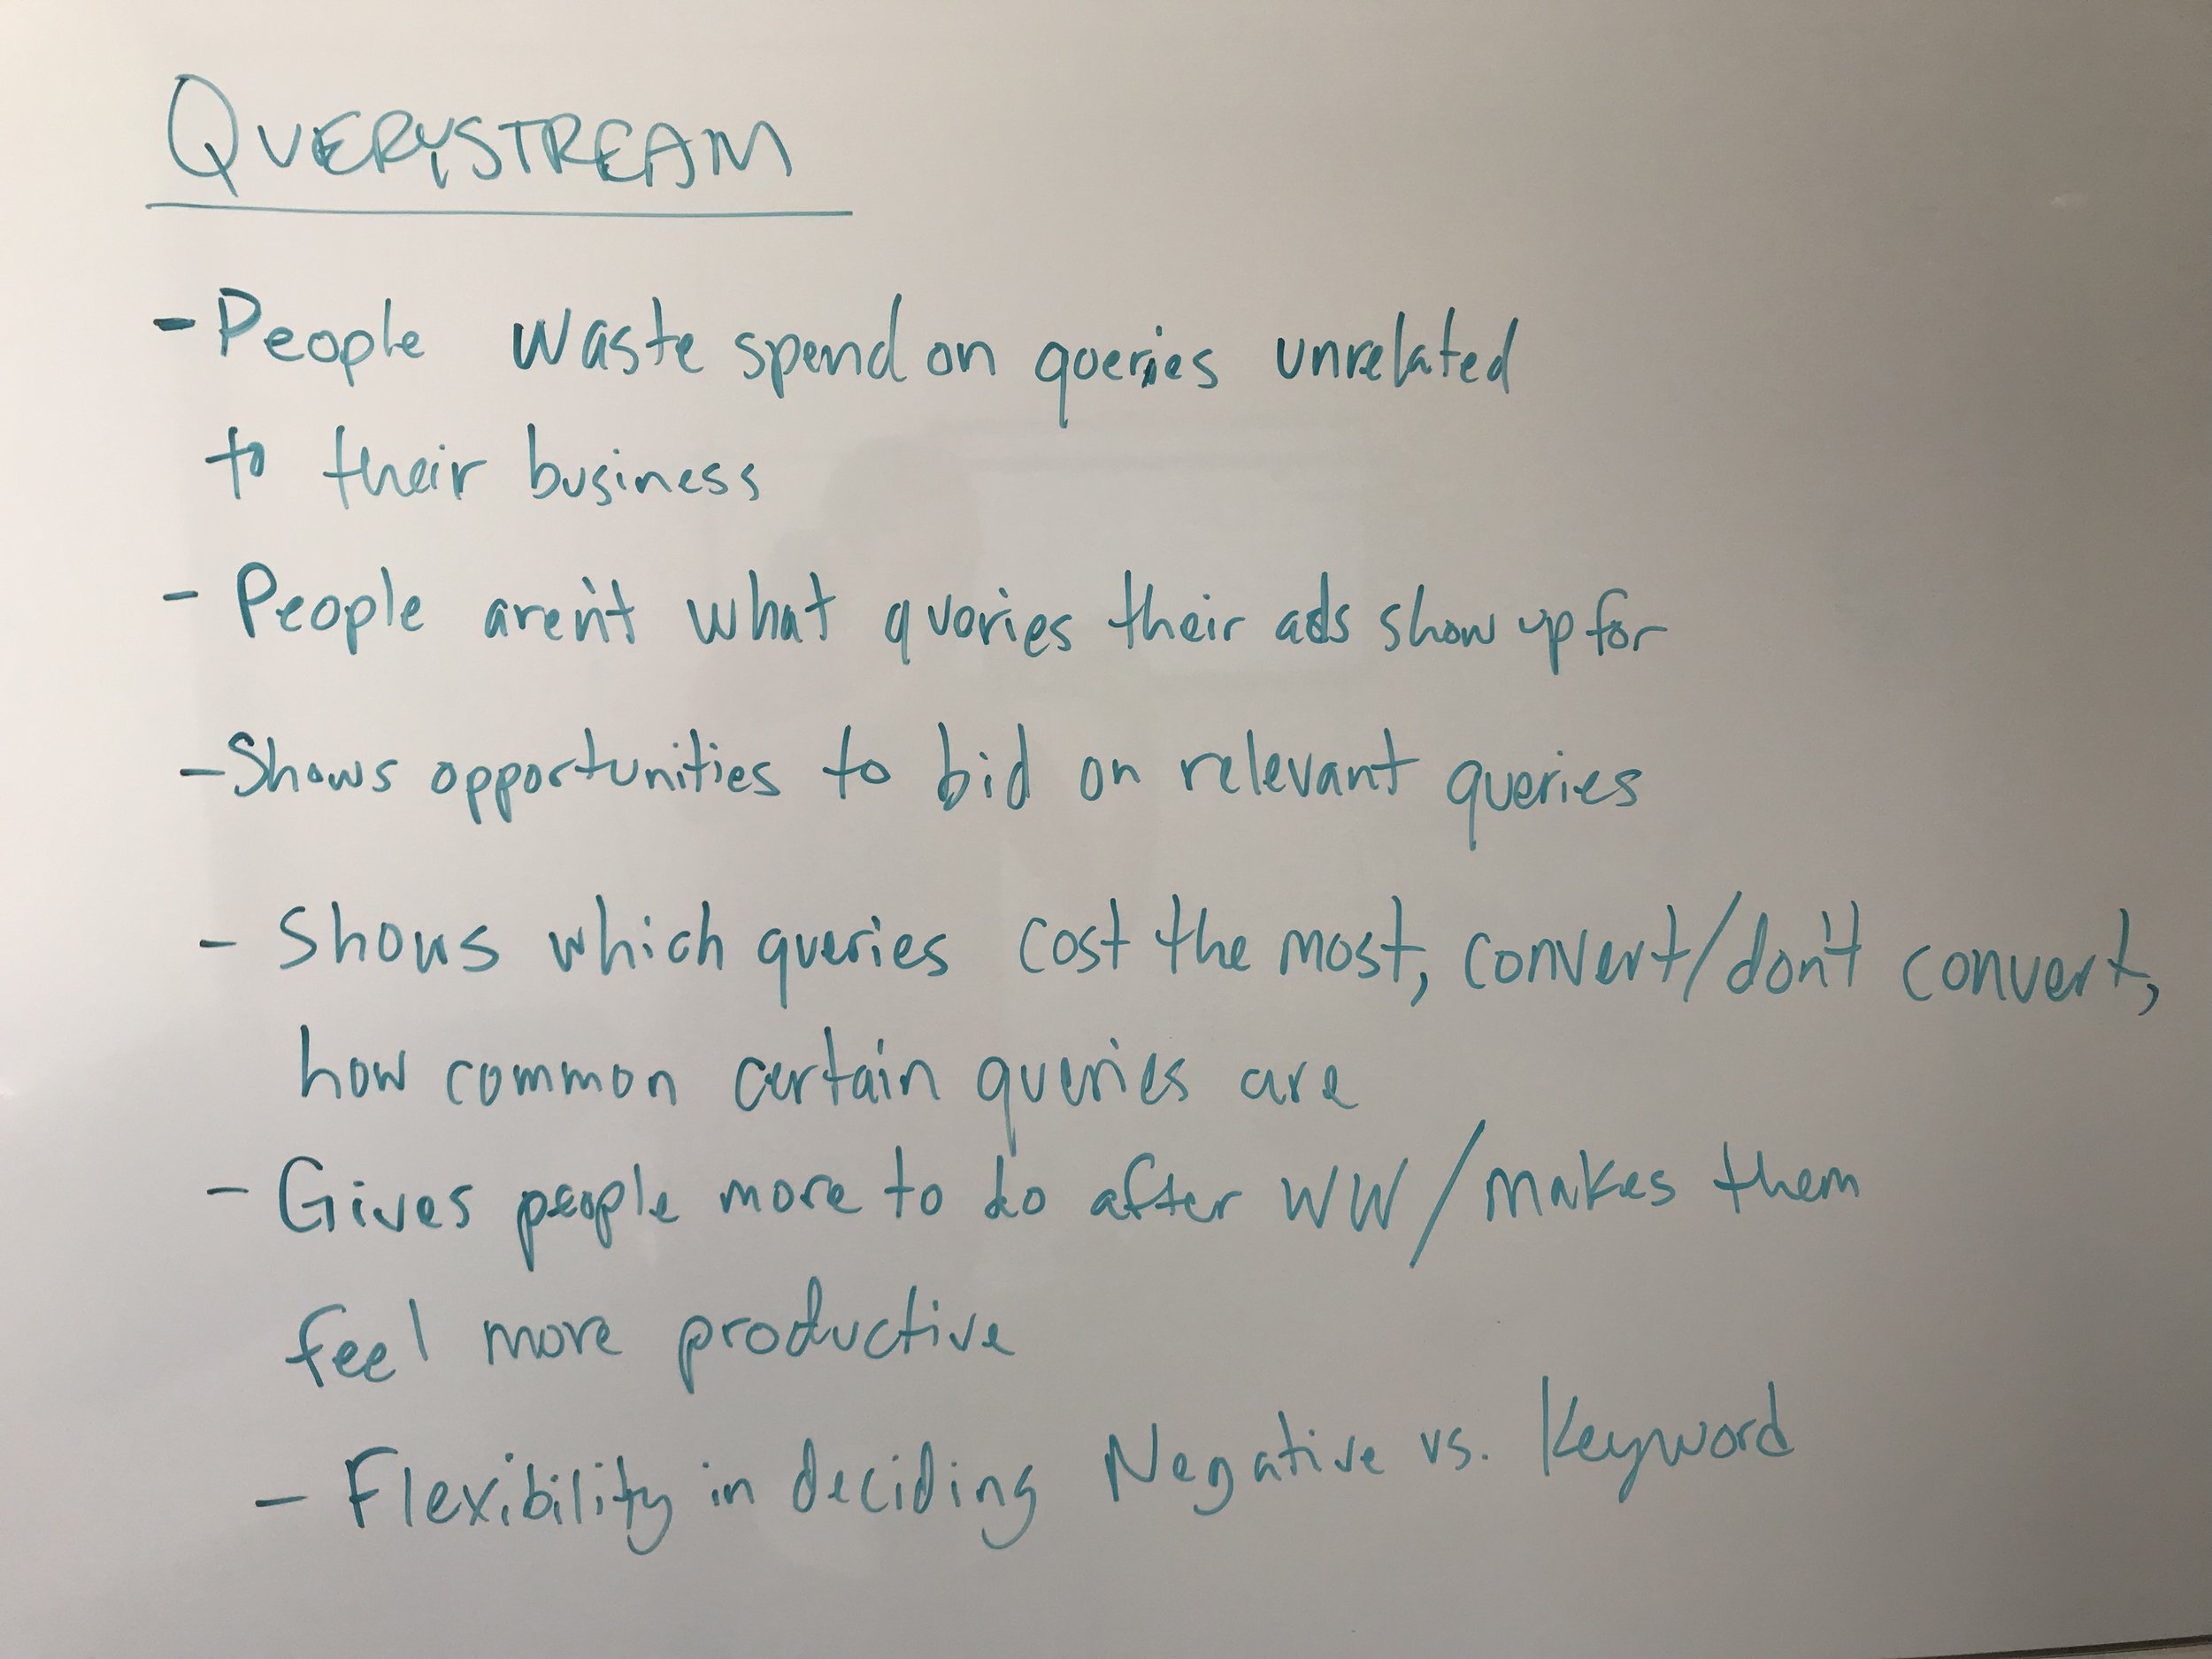 QUERYSTREAM
- People waste spend on queries unrelated
to their business
- People aren't what queries their ads show up for
- Shows opportunities to bid on relevant queries
- Shows which queries cost the most, convert/don't convert,
how common certain queries are
- Gives people more to do after WW/makes them
feel more productive
- Flexibility in deciding Negative vs. Keyword